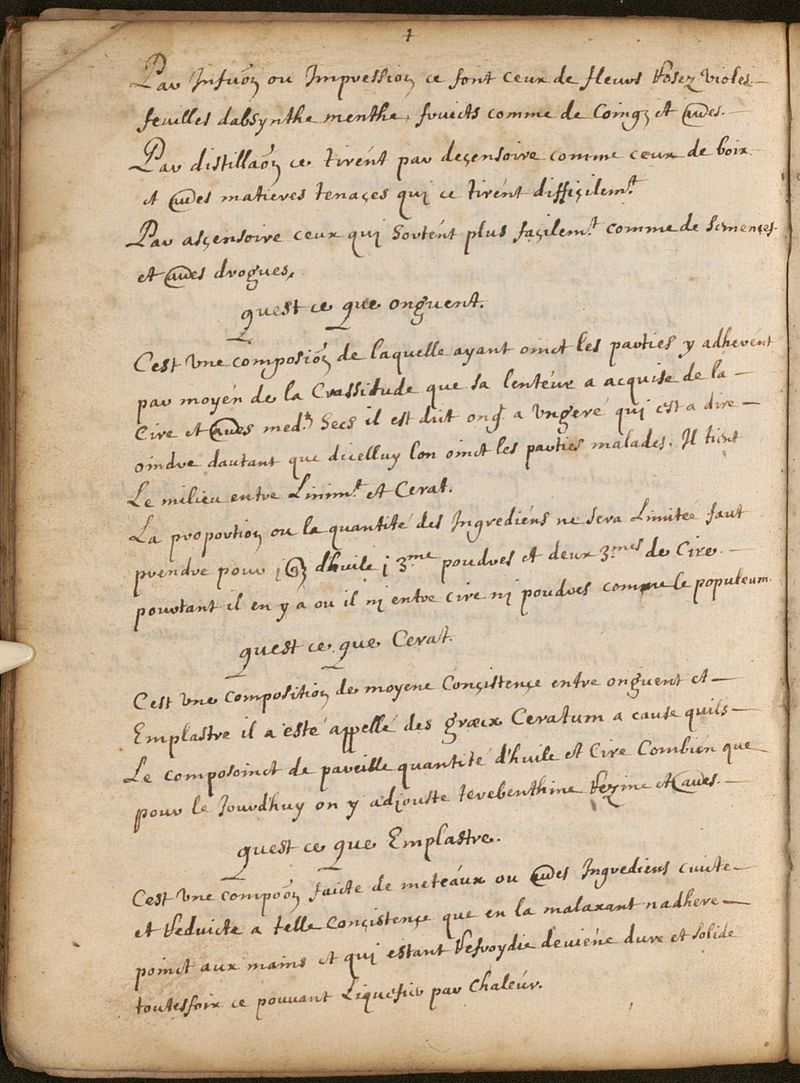 Par Infuõn ou Impression ce font ceux de fleurs Rosez violes
feuilles dabsynthe menthe, fruicts comme de Coings et aũes.
Par distillaõn ce tirént par deçensoire comme ceux de boix
et aũes matieres tenaçes qui ce tirént diffiçilemt
Par asçensoire ceux qui Sortént plus façilemt comme de Semençes
et aũes drogues,
quest ce que onguent.
Cest Une composiõn de laquelle ayant oinct les parties y adherént
par moyén de la Crassitude que sa lenteur a acquise de la
Cire et aũes medts Secs il est dict ong a Ungere qui est a dire
oindre dautant que dicelluy lon oinct les parties malades. Il tient
Le milieu entre Linimt et Cerat.
La proportion ou la quantité des Ingrediéns ne sera Limitée faut
prendre pour dhuile j 3me poudres et deux 3mes de Cire.
pourtant il en y a ou il ni entre cire ni poudres comme le populeum.
quest ce que Cerat.
Cest Une composition de moyene Conçistençe entre onguent et
Emplastre il a esté appellé des græx Ceratum a cause quils
Le composoinct de pareille quantité d'huile et Cire Combién que
pour le Jourdhuy on y adjouste terebenthine Rezine et aũes.
quest ce que Emplastre.
Cest Une compoõn faicte de meteaux ou aũes Ingrediens cuicte
et Reduicte a telle Conçistençe que en la malaxant nadhere
poinct aux mains et qui estant Refroydie deviéne dure et solide
toutesfoix ce pouvant Liquefier par Chaleur.